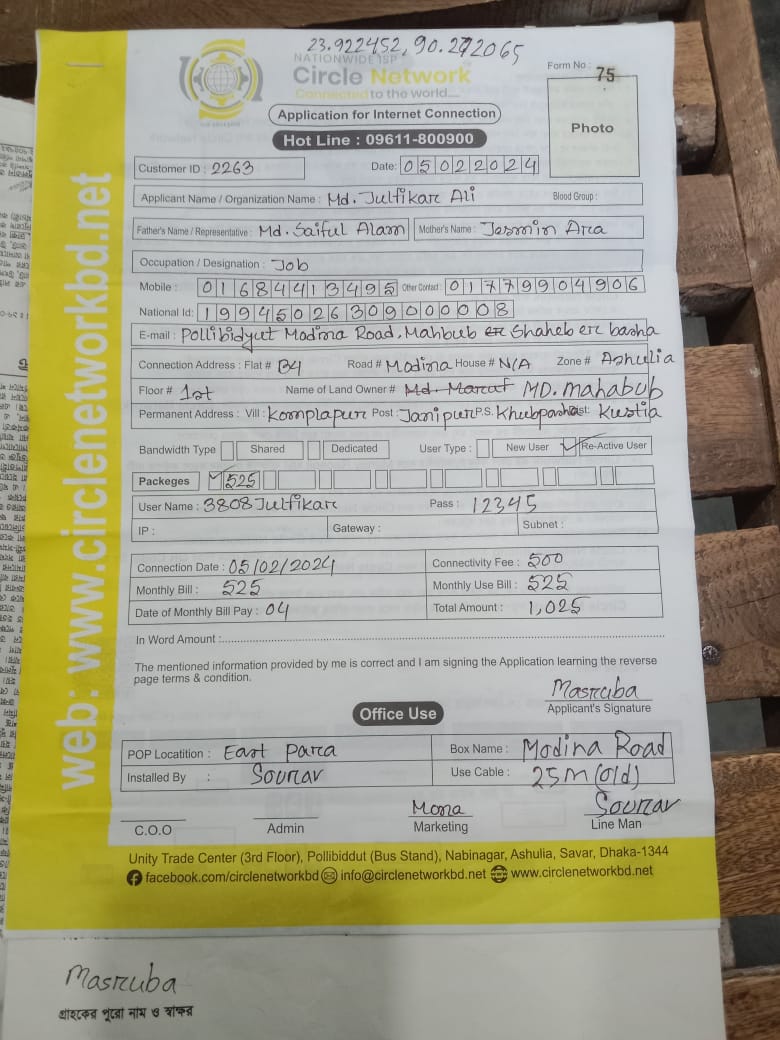 23.922452, 90.272065
NATIONWIDE ISP
Circle Network
Connected to the world....
Form No : 75
Application for Internet Connection
Photo
Hot Line : 09611-800900
Customer ID : 2263
Date: 05022024
Applicant Name / Organization Name : Md. Julfikar Ali Blood Group :
Father's Name / Representative : Md. Saiful Alam Mother's Name : Jesmin Ara
Occupation / Designation : Job
Mobile : 01684413495 Other Contact : 01779904906
National Id: 19945026309000008
E-mail : Pollibidyut Modina Road, Mahbub Shaheb er basha
Connection Address : Flat # B4 Road # Modina House # N/A Zone # Ashulia
Floor # 1st Name of Land Owner # Md. Maraf MD. Mahabub
Permanent Address : Vill : Komplapur Post : Janipur P.S. Khubpasha Dist: Kustia
Bandwidth Type Shared Dedicated User Type : New User Re-Active User
Packeges 525
User Name : 3808Julfikar Pass : 12345
IP : Gateway : Subnet :
Connection Date : 05/02/2024 Connectivity Fee : 500
Monthly Bill : 525 Monthly Use Bill : 525
Date of Monthly Bill Pay : 04 Total Amount : 1,025
In Word Amount :
The mentioned information provided by me is correct and I am signing the Application learning the reverse
page terms & condition.
Masruba
Applicant's Signature
Office Use
POP Locatition : East Para Box Name : Modina Road
Installed By : Sourav Use Cable : 25M (old)
Mona Sourav
C.O.O Admin Marketing Line Man
Unity Trade Center (3rd Floor), Pollibiddut (Bus Stand), Nabinagar, Ashulia, Savar, Dhaka-1344
facebook.com/circlenetworkbd info@circlenetworkbd.net www.circlenetworkbd.net
web: www.circlenetworkbd.net
Masruba
গ্রাহকের পুরো নাম ও স্বাক্ষর